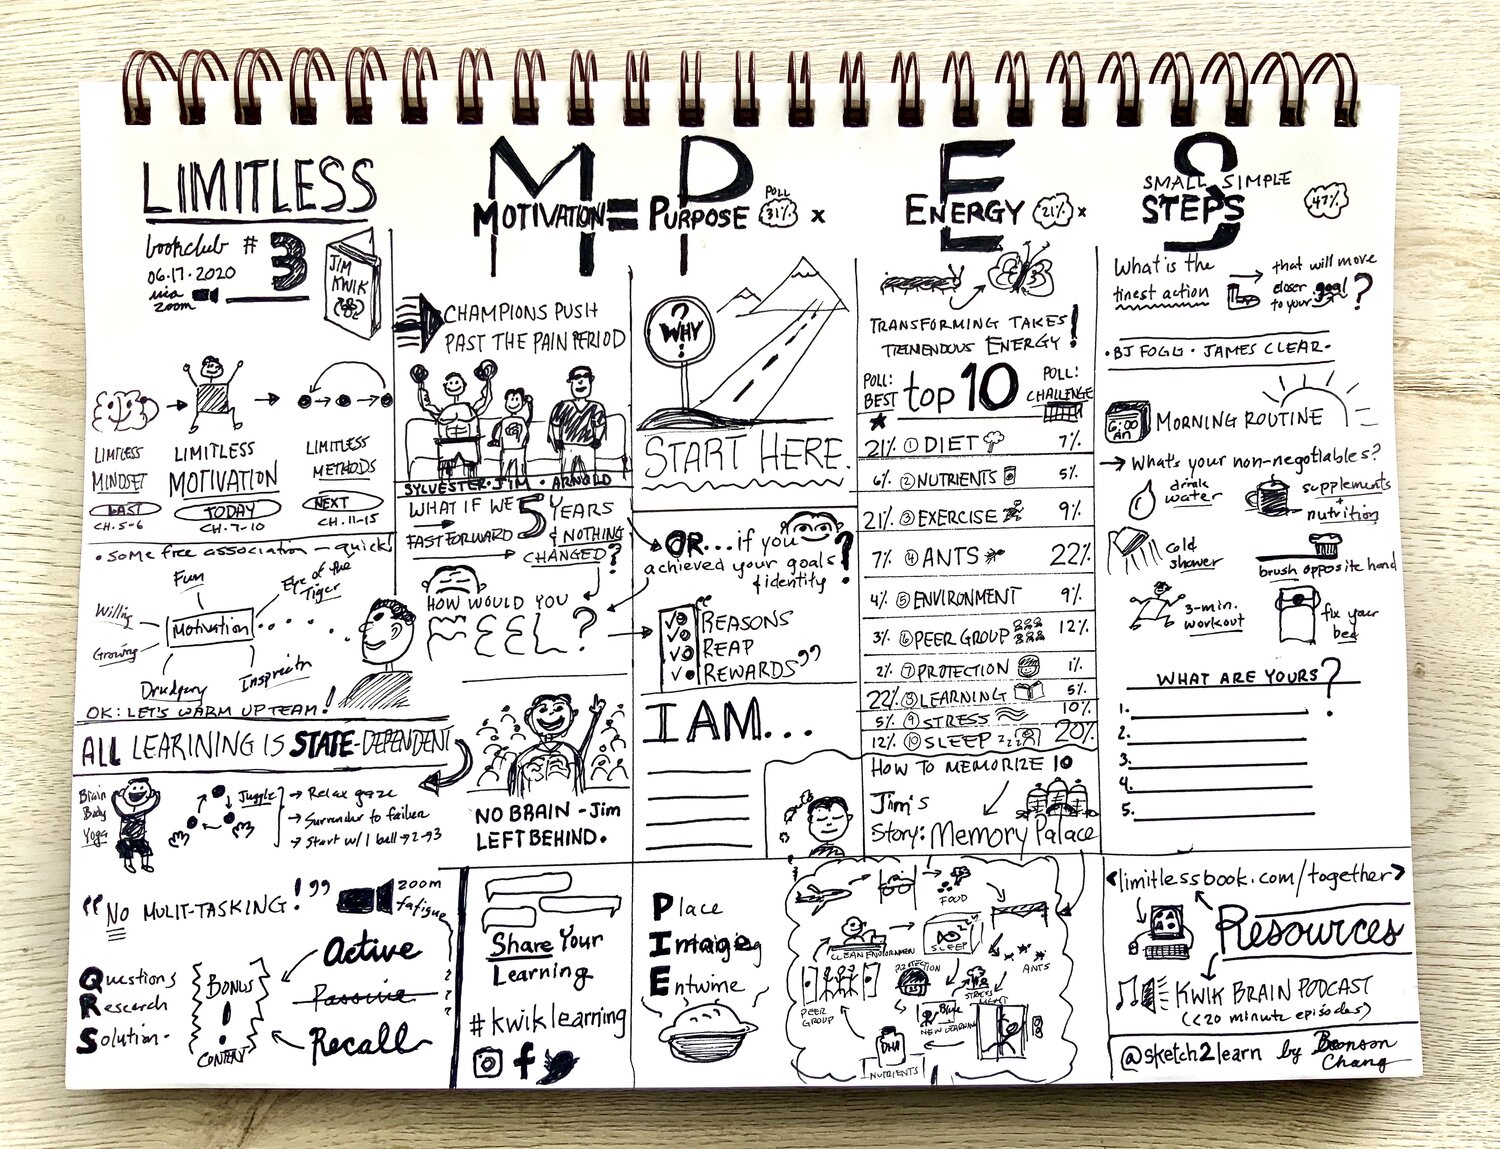 LIMITLESS
bookclub # 3
06.17.2020
via
zoom
JIM
KWIK
LIMITLESS
MINDSET
LAST
CH. 5-6
LIMITLESS
MOTIVATION
TODAY
CH. 7-10
LIMITLESS
METHODS
NEXT
CH. 11-15
• SOME free association — quick!
Fun
Eye of the
Tiger
Willing
Motivation
Growing
Drudgery
Inspiratn
OK: LET'S WARM UP TEAM!
ALL LEARINING IS STATE-DEPENDENT
Brain
Body
Yoga
Juggle
→ Relax gaze
→ Surrender to failure
→ Start w/ 1 ball → 2 → 3
"NO MULIT-TASKING!"
zoom
fatigue
Questions
Research
Solution-
BONUS
!
CONTENT
Active
Passive
Recall
M P E S
MOTIVATION = PURPOSE POLL 31% x ENERGY 21% x SMALL SIMPLE STEPS 47%
CHAMPIONS PUSH
PAST THE PAIN PERIOD
SYLVESTER • JIM • ARNOLD
WHAT IF WE 5 YEARS
FAST FORWARD & NOTHING
CHANGED?
HOW WOULD YOU
FEEL?
NO BRAIN - Jim
LEFT BEHIND.
Share Your
Learning
#kwiklearning
f
? WHY ?
START HERE.
OR... if you
achieved your goals
& identity?
"REASONS
REAP
REWARDS"
I AM...
Place
Image
Entwine
TRANSFORMING TAKES
TREMENDOUS ENERGY!
POLL:
BEST
top 10
POLL:
CHALLENGE
21% 1 DIET 7%
6% 2 NUTRIENTS 5%
21% 3 EXERCISE 9%
7% 4 ANTS 22%
4% 5 ENVIRONMENT 9%
3% 6 PEER GROUP 12%
2% 7 PROTECTION 1%
22% 8 LEARNING 5%
5% 9 STRESS 10%
12% 10 SLEEP ZZZ 20%
HOW TO MEMORIZE 10
Jim's
Story: Memory Palace
FOOD
SLEEP
CLEAN ENVIRONMENT
ANTS
PROTECTION
STRESS
MGMT
PEER
GROUP
NEW LEARNING
DHA
NUTRIENTS
What is the
tinest action
that will move
closer
to your goal?
• BJ FOGG • JAMES CLEAR •
6:00
AM
MORNING ROUTINE
→ What's your non-negotiables?
drink
water
supplements
+
nutrition
cold
shower
brush opposite hand
3-min.
workout
fix your
bed
WHAT ARE YOURS?
1.
2.
3.
4.
5.
<limitlessbook.com/together>
Resources
KWIK BRAIN PODCAST
(<20 minute episodes)
@sketch2learn by Benson
Chang